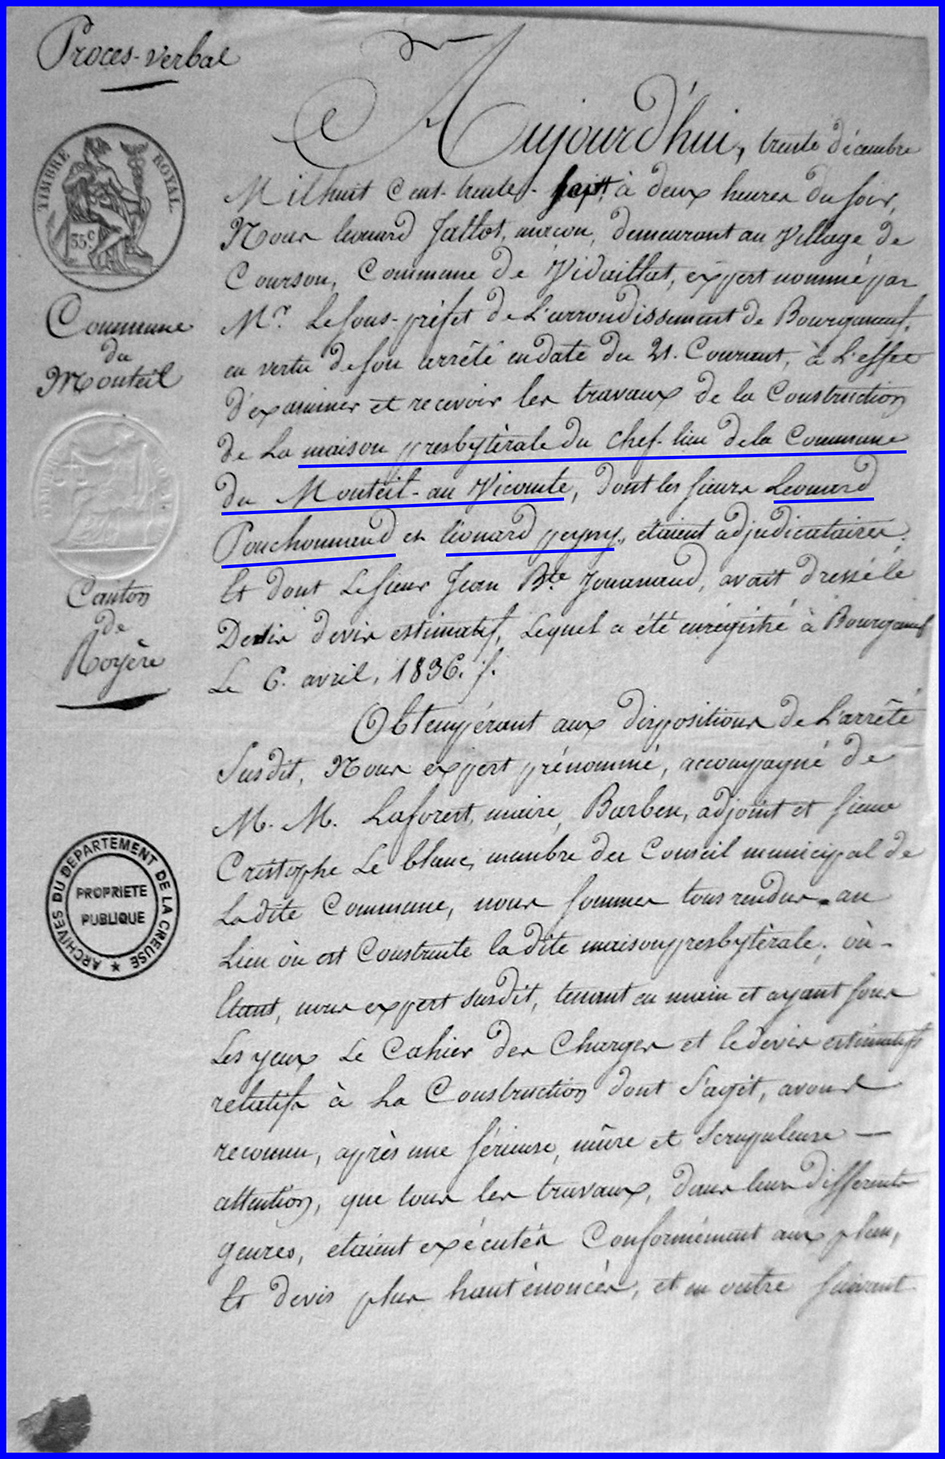 Procès-verbal
TIMBRE ROYAL.
35c
Commune
du
Monteil
Canton
de
Royère
ARCHIVES DU DEPARTEMENT DE LA CREUSE
PROPRIETE
PUBLIQUE
Aujourd'hui, trente décembre
Mil huit Cent trente-sept, à deux heures du soir,
Nous leonard Jallot, maçon, demeurant au Village de
Courson, Commune de Vidaillat, expert nommé par
Mr. Le sous-préfet de L'arrondissement de Bourganeuf,
en vertu de son arrêté en date du 21. Courant, à L'effet
d'examiner et recevoir les travaux de la Construction
de La maison presbytèrale du chef-lieu de la Commune
du Monteil-au Vicomte, dont les sieurs Leonard
Pouchonnaud et léonard peyny, etaient adjudicataires.
Et dont Le sieur Jean Bte. Jouanaud, avait dressé le
Devis estimatif, Lequel a été enrégistré à Bourganeuf
Le 6. avril, 1836. /.
Obtempérant aux dispositions de L'arrêté
Susdit, Nous expert prénommé, accompagné de
M. M. Laforest, maire, Barben, adjoint et sieur
Cristophe Le blanc, membre du Conseil municipal de
La dite Commune, nous sommes tous rendus au
Lieu où est Construite la dite maison presbytèrale; où-
Etant, nous expert susdit, tenant en main et ayant sous
Les yeux Le Cahier des Charges et le devis estimatifs
relatifs à La Construction dont S'agit, avons
reconnu, après une sérieuse, mûre et scrupuleuse —
attention, que tous les travaux, dans leurs differents
genres, etaient exécutés Conformément aux plan,
Et devis plus haut énoncés, et en outre suivant